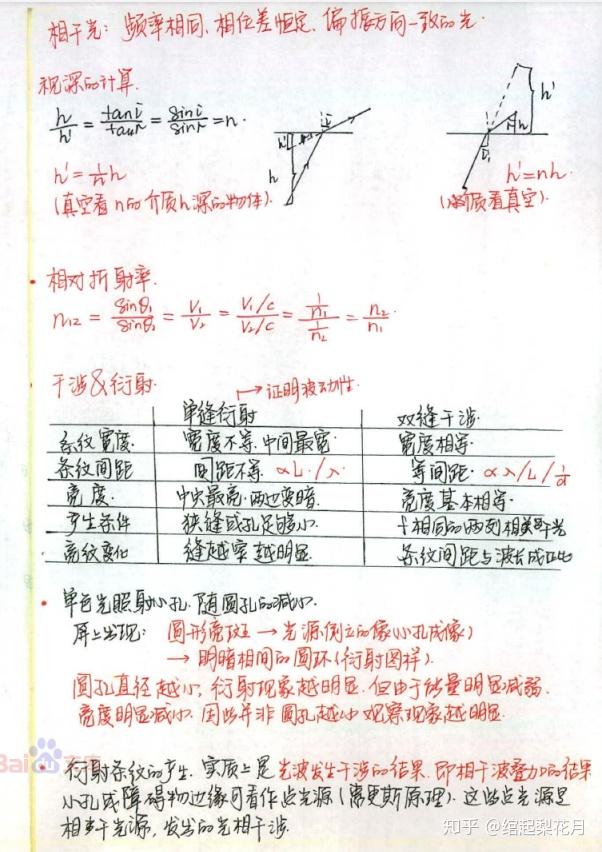 相干光：频率相同、相位差恒定、偏振方向一致的光.
视深的计算.
h/h' = tani/tanr = sini/sinr = n.
h' = 1/n h
(真空看n的介质h深的物体).
h'
h
i
h'
h
h' = nh.
(介质看真空).
相对折射率.
n12 = sinθ1/sinθ2 = V1/V2 = (V1/c)/(V2/c) = (1/n1)/(1/n2) = n2/n1
干涉&衍射.
→证明波动性.
单缝衍射 双缝干涉.
条纹宽度. 宽度不等.中间最宽. 宽度相等.
条纹间距 间距不等. ∝L./λ. 等间距. ∝λ/L/ 1/d
亮度. 中央最亮.两边变暗. 亮度基本相等.
产生条件 狭缝或孔足够小. 相同的两列相干光
亮纹变化 缝越窄越明显. 条纹间距与波长成正比
单色光照射小孔.随圆孔的减小.
屏上出现: 圆形亮斑→光源倒立的像(小孔成像)
→明暗相间的圆环(衍射图样).
圆孔直径越小,衍射现象越明显.但由于能量明显减弱.
亮度明显减小.因此并非圆孔越小观察现象越明显.
衍射条纹的产生.实质上是光波发生干涉的结果.即相干波叠加的结果
小孔或障碍物边缘可看作点光源(惠更斯原理).这些点光源是
相干光源,发出的光相干涉.
Bai 文库
知乎 @绾起梨花月